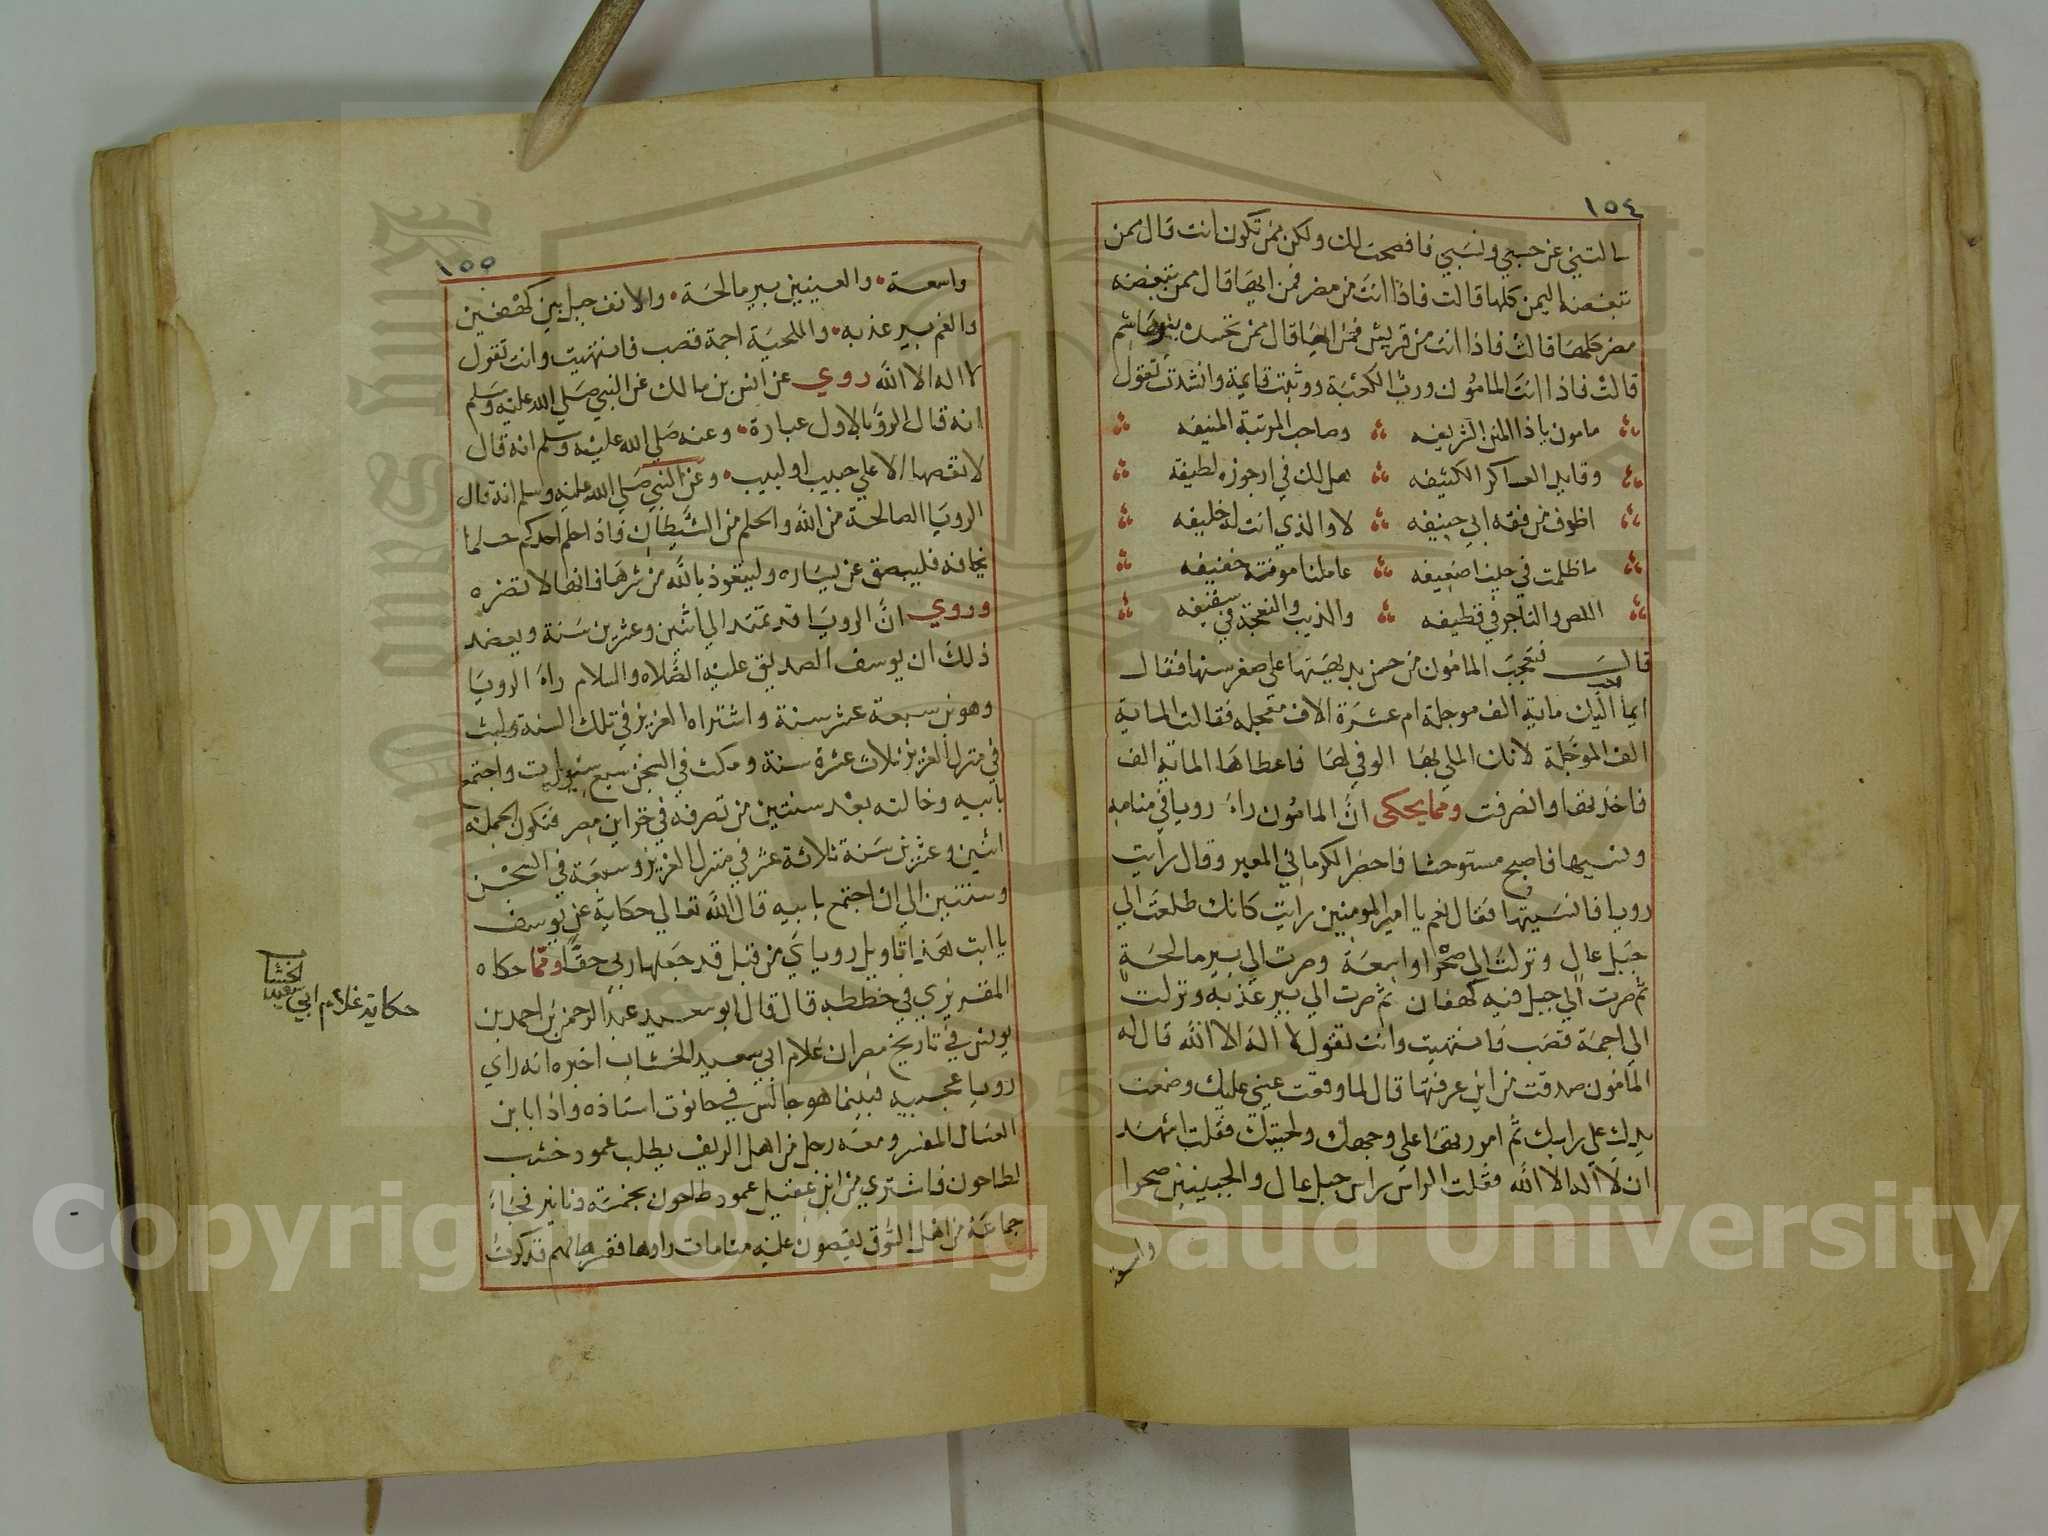 ١٥٤
سالتني عن حسبي ونسبي فافصحت لك ولكن ممن تكون انت قال ممن
تبغضه اليمن كلها قالت فاذا انت من مضر فمن ايها قال ممن تبغضه
مضر كلها قالت فاذا انت من قريش فمن ايها قال ممن تحسده بنو هاشم
قالت فاذا انت المامون ورب الكعبة ووثبت قايمة وانشدت تقول
مامون ياذا المنن الشريفه وصاحب المرتبة المنيفه
وقايد العساكر الكثيفه هل لك في ارجوزه لطيفة
اظرف من فقه ابي حنيفه لا والذي انت له خليفه
ما ظلمت في حينا ضعيفه عاملنا مونته خفيفه
اللص والتاجر في قطيفه والذيب والنعجة في سقيفه
قال فتعجب المامون من حسن بديهيتها على صغر سنها فقال
ايما احب اليك ماية الف موجلة ام عشرة الاف معجله فقالت الماية
الف الموجلة لانك الملي بها الوفي لها فاعطاها الماية الف
فاخذتها وانصرفت ومما يحكى ان المامون راه رويا في منامه
ونسيها فاصبح مستوحشا فاحضر الكرماني المعبر وقال رايت
رويا فانسيتها فقال نعم يا امير المومنين رايت كانك طلعت الي
جبل عال ونزلت الي صحرا واسعة وصرت الي بير مالحة
ثم صرت الي جبل فيه كهفان ثم صرت الي بير عذبه ونزلت
الي اجمة قصب فانتهيت وانت تقول لا اله الا الله قال له
المامون صدقت من اين عرفتها قال لما وقعت عيني عليك وضعت
يدك علي راسك ثم امررتها علي وجهك ولحيتك فقلت اشهد
ان لا اله الا الله فقلت الراس راس جبل عال والجبينين صحرا
واسعة
١٥٥
واسعة والعينين بير مالحة والانف جبل بين كهفين
والفم بير عذبه واللحية اجمة قصب فانتهيت وانت تقول
لا اله الا الله روي عن انس بن مالك عن النبي صلي الله عليه وسلم
انه قال الرؤيا لاول عبارة وعنه صلي الله عليه وسلم انه قال
لا تقصها الا علي حبيب او لبيب وعن النبي صلي الله عليه وسلم انه قال
الرويا الصالحة من الله والحلم من الشيطان فاذا حلم احدكم حلما
يخافه فليبصق عن يساره وليتعوذ بالله من شرها فانها لا تضره
وروي ان الرويا قد تمتد الي اثنين وعشرين سنة ويعضد
ذلك ان يوسف الصديق عليه الصلاه والسلام راه الرويا
وهو بن سبعة عشر سنة واشتراه العزيز في تلك السنة ولبث
في منزل العزيز ثلاث عشرة سنة ومكث في السجن سبع سنين واجتمع
بابيه وخالته بعد سنتين من تصرفه في خزاين مصر فتكون الجملة
اثنين وعشرين سنة ثلاثة عشر في منزل العزيز وسبعة في السجن
وسنتين الي ان اجتمع بابيه قال الله تعالي حكاية عن يوسف
يا ابت هذا تاويل روياي من قبل قد جعلها ربي حقا ومما حكاه
المقريزي في خططه قال قال ابو سعيد عبد الرحمن بن احمد بن
يونس في تاريخ مصر ان غلام ابي سعيد الخشاب اخبره انه راي
رويا عجيبه فبينما هو جالس في حانوت استاذه واذا بابن
العسال المفسر ومعه رجل من اهل الريف يطلب عمود خشب
لطاحون فاشتري من ابن عقيل عمود طاحون بخمسة دنانير فجاء
جماعة من اهل السوق يقصون عليه منامات راوها ففسرها لهم فذكرت
حكاية غلام ابي سعيد الخشاب
Copyright © King Saud University